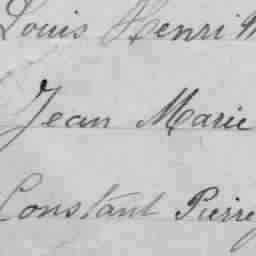 Louis Henri
Jean Marie
Constant Pierre